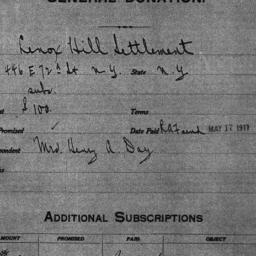 GENERAL DONATION.
Lenox Hill Settlement
446 E 72 St. N.Y. State N.Y.
subs.
$ 100. Terms
Promised Date Paid MAY 17 1917
Mrs. Henry A. Day
ADDITIONAL SUBSCRIPTIONS
AMOUNT PROMISED PAID OBJECT